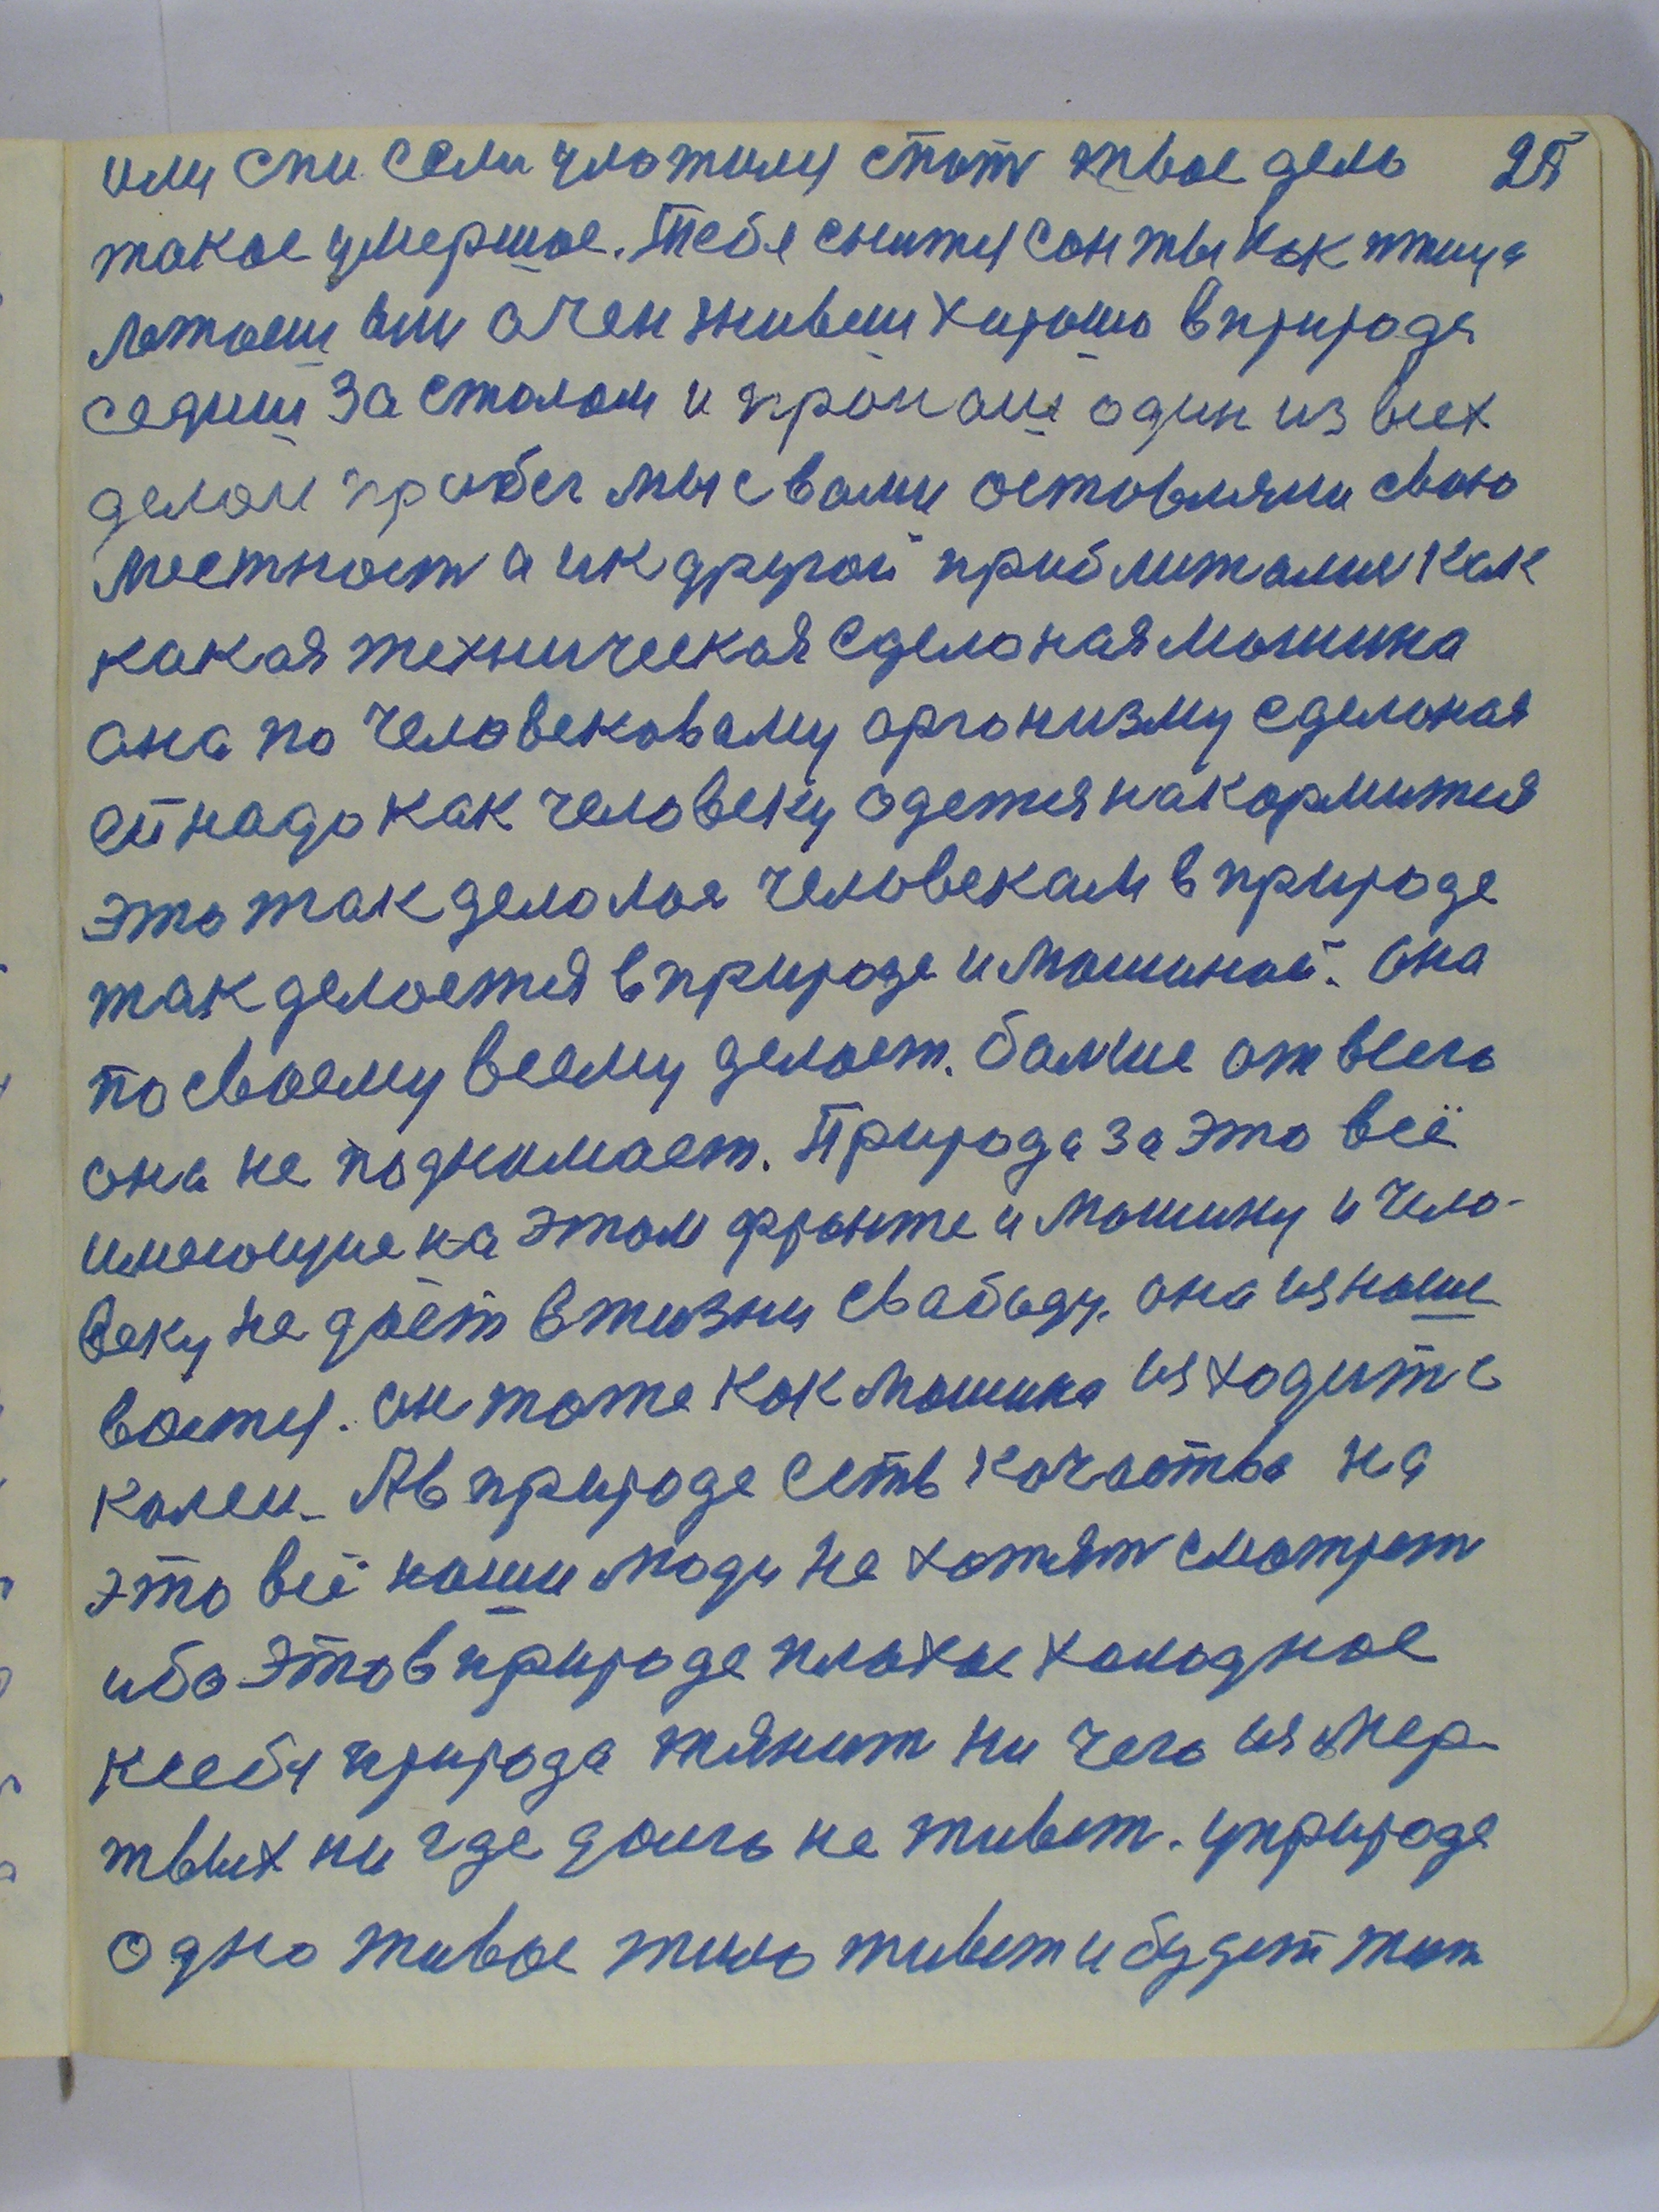 или спи если уложили спат твое дело 25
такое умершое. Тебя снится сон ты как птица
летаеш или очен живеш хорошо в природе
седиш за столом и прон один из всех
делаеш пробег мы с вами оставляим свою
местност а ик другой приближалися как
какая техническая сделоная машина
она по человековому организму сделоная
ей надо как человеку одется накормится
это так делолоя человекам в природе
так делается в природе и машиной. она
по своему всему делает. болше от всего
она не поднимает. Природа за это всё
имеющие на этом фронте и машину и чело-
веку не даёт в жизни свабоду. она изнаши
вается. он тоже как машина изходит с
колеи. А в природе есть качества на
это всё наши люди не хотят смотрет
ибо это в природе плохое холодное
к себя природа тянит ни чего из мер-
твых ни где долго не живет. уприроде
одно живое жило живет и будет жит